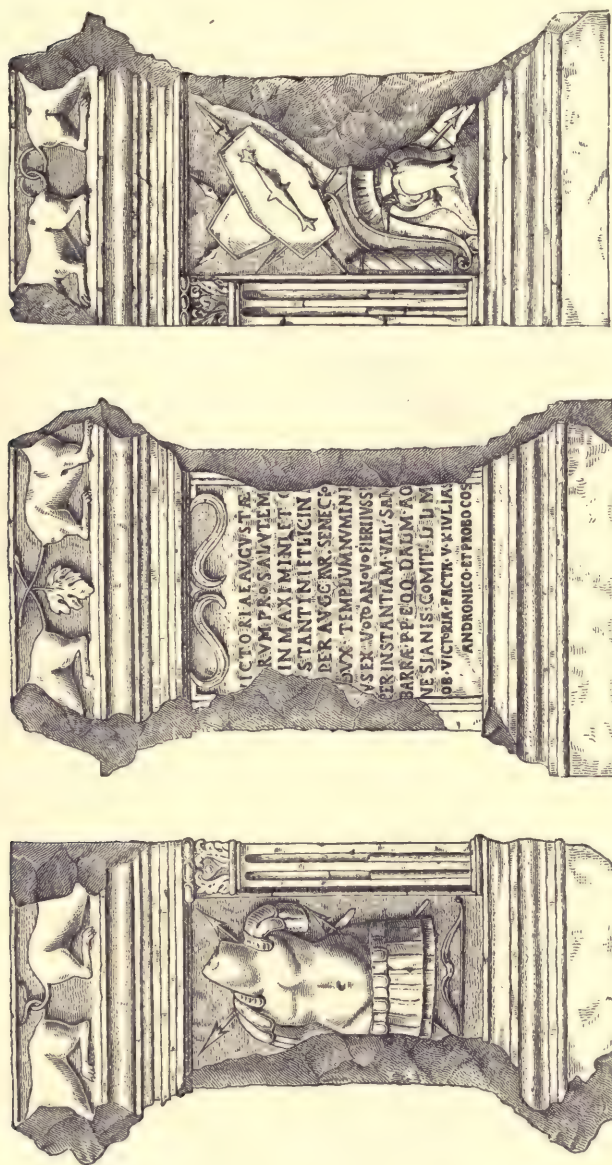 ICTORIAE AVGVSTÆ
RVM PRO SALVTEM
IN MAXIMINI ET C
STANTINI ET LICIN
PER AVGG·AVR·SENECIO
DVX·TEMPLVM NVMIN
VS EX·VOTO A NOVO FIERI IVSS
PER INSTANTIAM·VAL·SAN
BARRÆ·PP·EQQ·DALM·AQ
NESIANIS·COMIT·L·D·L·M
OB·VICTORIA·FACTA·V·K·IVLIAS
ANDRONICO·ET·PROBO·COS